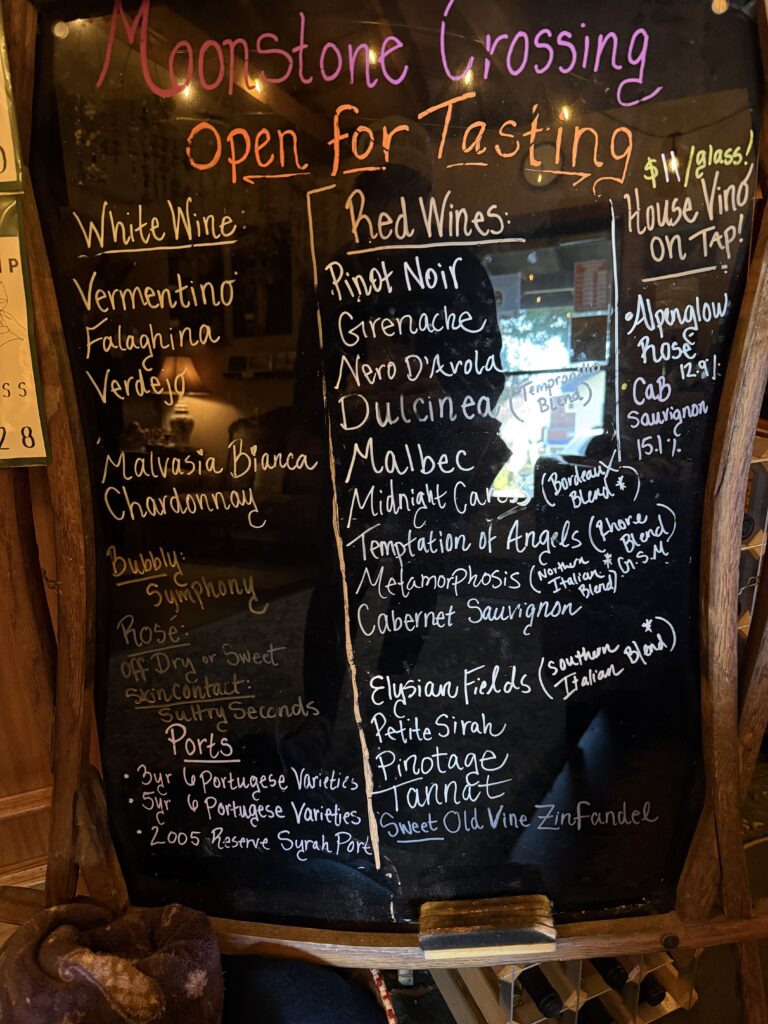 Moonstone Crossing
Open for Tasting
White Wine:
Vermentino
Falaghina
Verdejo
Malvasia Bianca
Chardonnay
Bubbly:
Symphony
Rosé:
Off Dry or Sweet
Skin contact:
Sultry Seconds
Ports
• 3yr 6 Portugese Varieties
• 5yr 6 Portugese Varieties
• 2005 Reserve Syrah Port
Red Wines:
Pinot Noir
Grenache
Nero D'Avola
Dulcinea (Tempranillo
Blend)
Malbec
Midnight Caress (Bordeaux
Blend*)
Temptation of Angels (Rhone
Blend)
G.S.M.
Metamorphosis (Northern
Italian *
Blend)
Cabernet Sauvignon
Elysian Fields (Southern *
Italian Blend)
Petite Sirah
Pinotage
Tannat
Sweet Old Vine Zinfandel
$11/glass!
House Vino
on TAP!
• Alpenglow
Rosé
12.9%
CaB
Sauvignon
15.1%
P
SS
28